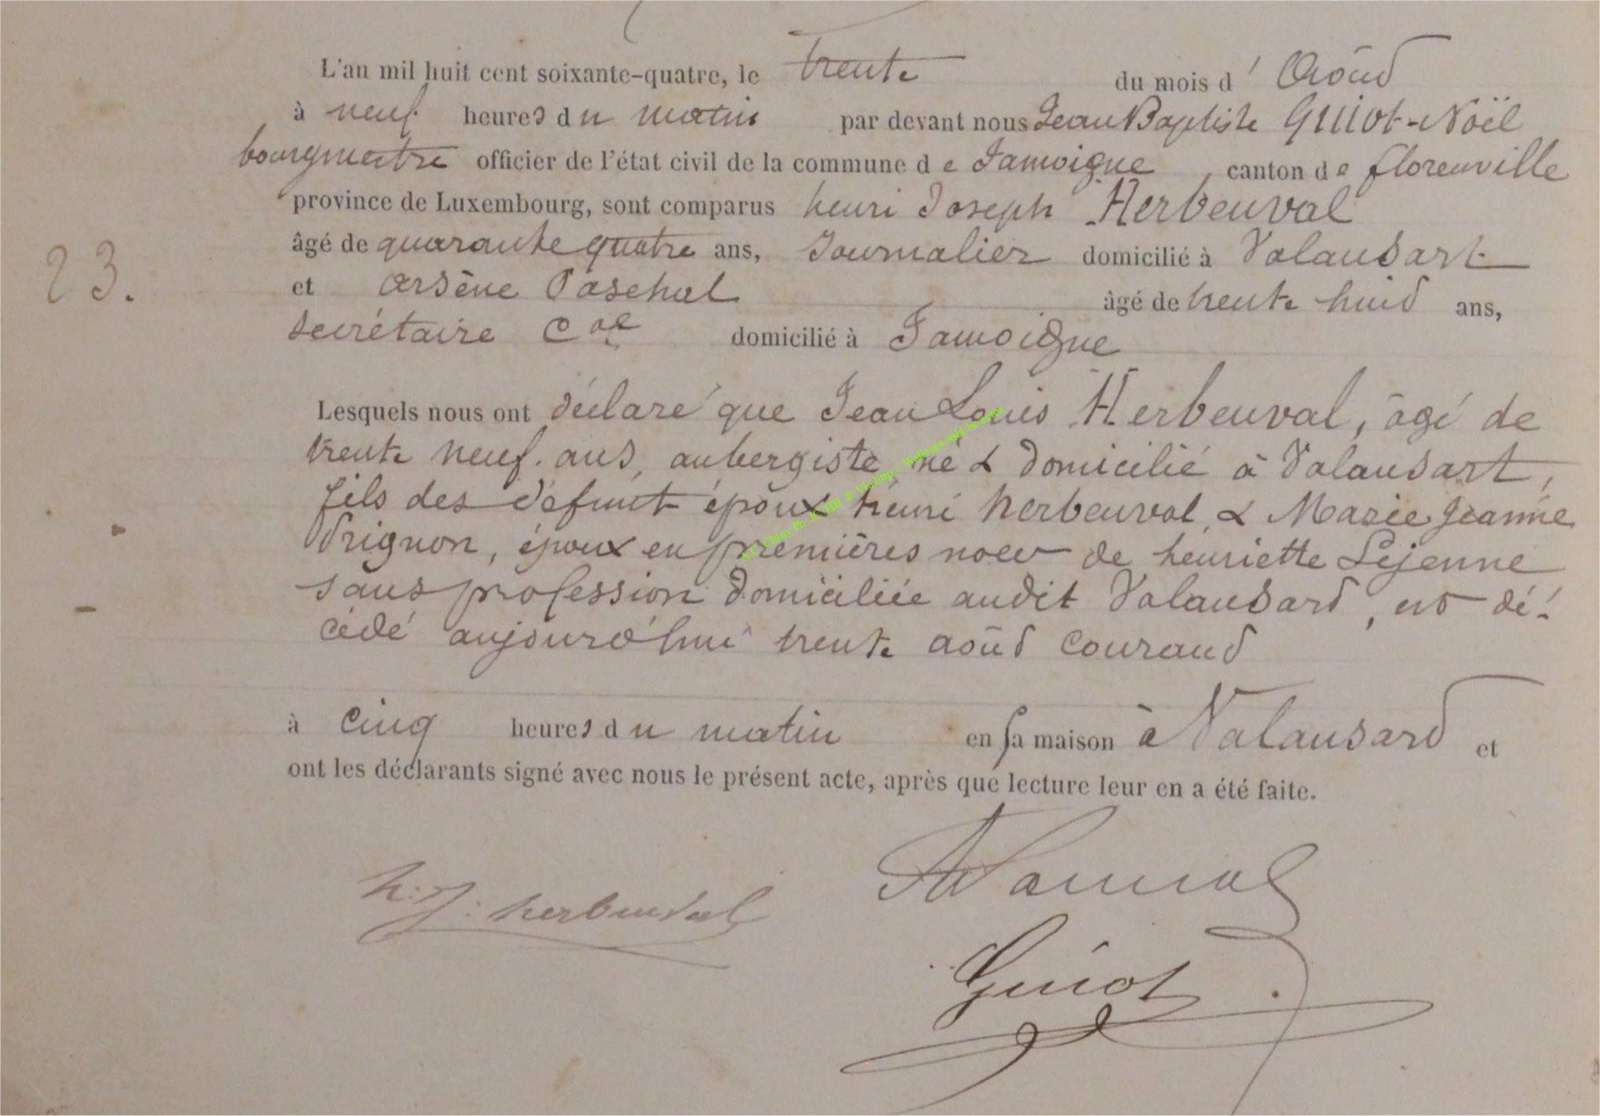 L'an mil huit cent soixante-quatre, le trente du mois d' Août
à neuf heures du matin par devant nous Jean Baptiste Guiot-Noël
bourgmestre officier de l'état civil de la commune de Jamoigne canton de florenville
province de Luxembourg, sont comparus henri Joseph Herbeuval
âgé de quarante quatre ans, Journalier domicilié à Valansart
23.
et Arsène Paschal âgé de trente huit ans,
secrétaire Cal domicilié à Jamoigne
Lesquels nous ont déclaré que Jean Louis Herbeuval, âgé de
trente neuf ans, aubergiste, né & domicilié à Valansart,
fils des défunt époux henri herbeuval & Marie Jeanne
Prignon, époux en premières noces de henriette Lejeune
sans profession domiciliée audit Valansart, est dé-
cédé aujourd'hui trente août courant
à cinq heures du matin en sa maison à Valansart et
ont les déclarants signé avec nous le présent acte, après que lecture leur en a été faite.
h: J: herbeuval
Guiot